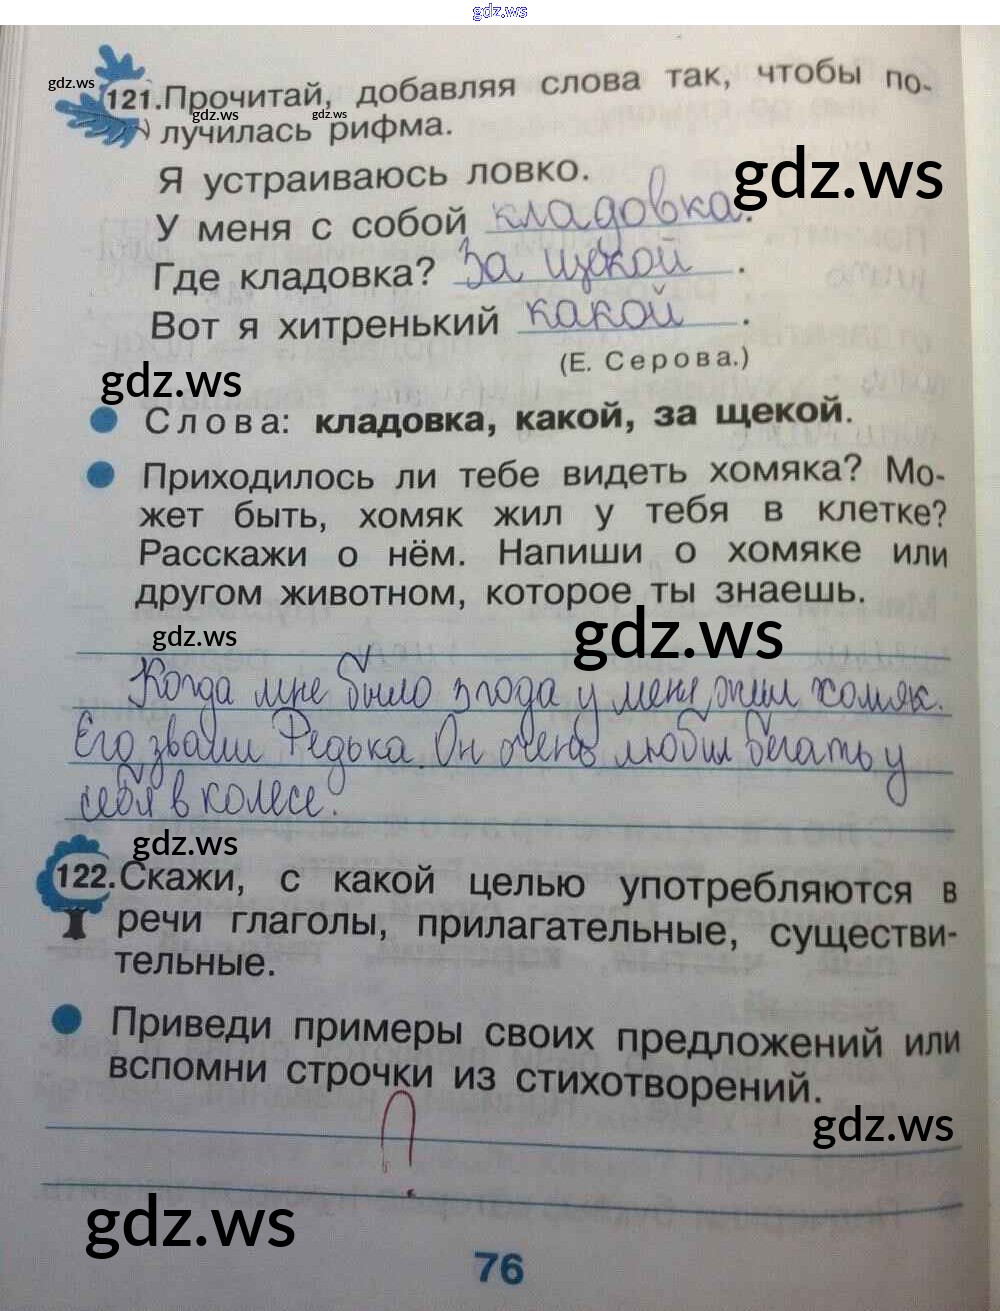 gdz.ws
gdz.ws
121. Прочитай, добавляя слова так, чтобы по-
gdz.ws gdz.ws
лучилась рифма.
Я устраиваюсь ловко.
gdz.ws
У меня с собой кладовка.
Где кладовка? За щекой.
Вот я хитренький какой.
(Е. Серова.)
gdz.ws
Слова: кладовка, какой, за щекой.
Приходилось ли тебе видеть хомяка? Мо-
жет быть, хомяк жил у тебя в клетке?
Расскажи о нём. Напиши о хомяке или
другом животном, которое ты знаешь.
gdz.ws gdz.ws
Когда мне было 3 года у меня жил хомяк.
Его звали Редька. Он очень любил бегать у
себя в колесе.
gdz.ws
122. Скажи, с какой целью употребляются в
речи глаголы, прилагательные, существи-
тельные.
Приведи примеры своих предложений или
вспомни строчки из стихотворений.
?
gdz.ws
gdz.ws
76